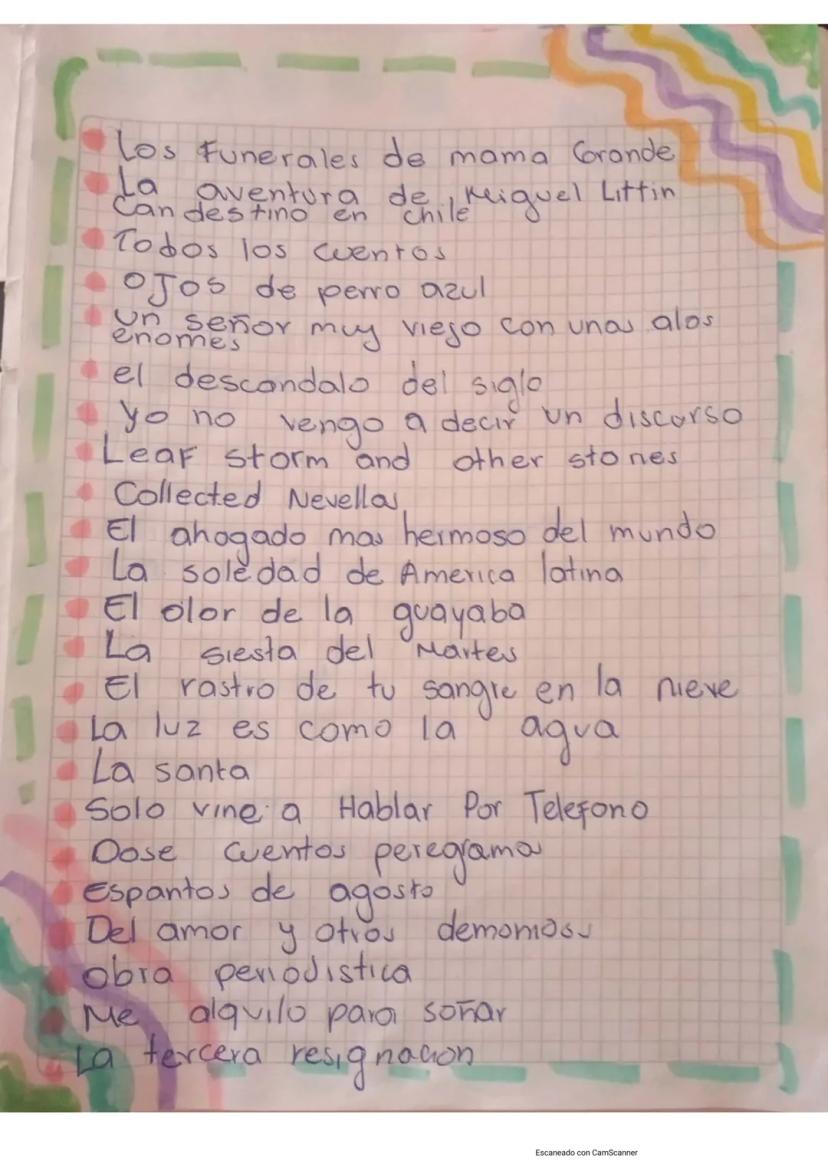 Los Funerales de mama Grande
La aventura de Miguel Littin
Candestino en chile
Todos los cuentos
OJos de perro azul
un señor muy viejo con unas alas
enomes
el descandalo del siglo
yo no vengo a decir un discurso
Leaf storm and other stories
Collected Nevellas
El ahogado mas hermoso del mundo
La soledad de America latina
El olor de la guayaba
La siesta del Martes
El rastro de tu sangre en la nieve
La luz es como la agua
La santa
Solo vine a Hablar Por Telefono
Dose cuentos peregrama
Espantos de agosto
Del amor y otros demonios
obra periodistica
Me alquilo para soñar
La tercera resignacion
Escaneado con CamScanner